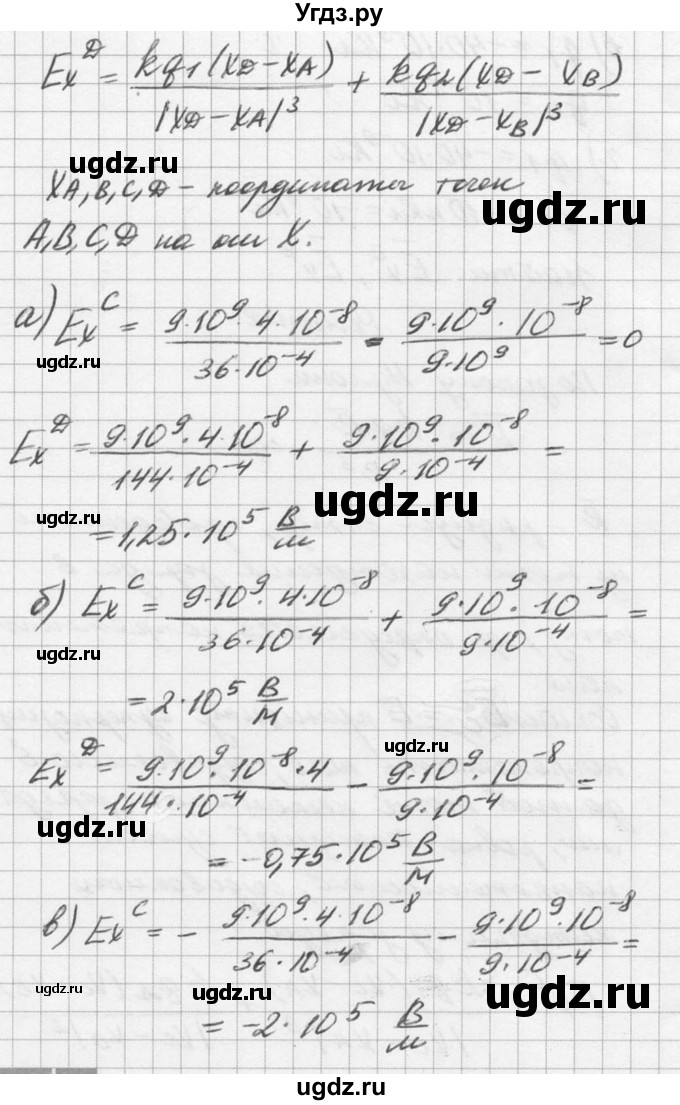 Угдз.ру
E_x^D = kq1(xD−xA)/|xD−xA|^3 + kq2(xD−xB)/|xD−xB|^3
XA,B,C,D – координаты точек
ugdz.ru
A,B,C,D на оси X.
а) E_x^C = 9·10^9·4·10^-8/36·10^-4 - 9·10^9·10^-8/9·10^9 = 0
ugdz.ru
E_x^D = 9·10^9·4·10^-8/144·10^-4 + 9·10^9·10^-8/9·10^-4 =
ugdz.ru
ugdz.ru
= 1,25·10^5 В/м
б) E_x^C = 9·10^9·4·10^-8/36·10^-4 + 9·10^9·10^-8/9·10^-4 =
ugdz.ru
= 2·10^5 В/м
ugdz.ru
E_x^D = 9·10^9·10^-8·4/144·10^-4 − 9·10^9·10^-8/9·10^-4 =
ugdz.ru
= −0,75·10^5 В/м
в) E_x^C = − 9·10^9·4·10^-8/36·10^-4 − 9·10^9·10^-8/9·10^-4 =
ugdz.ru
ugdz.ru
ugdz.ru
= −2·10^5 В/м
ugdz.ru